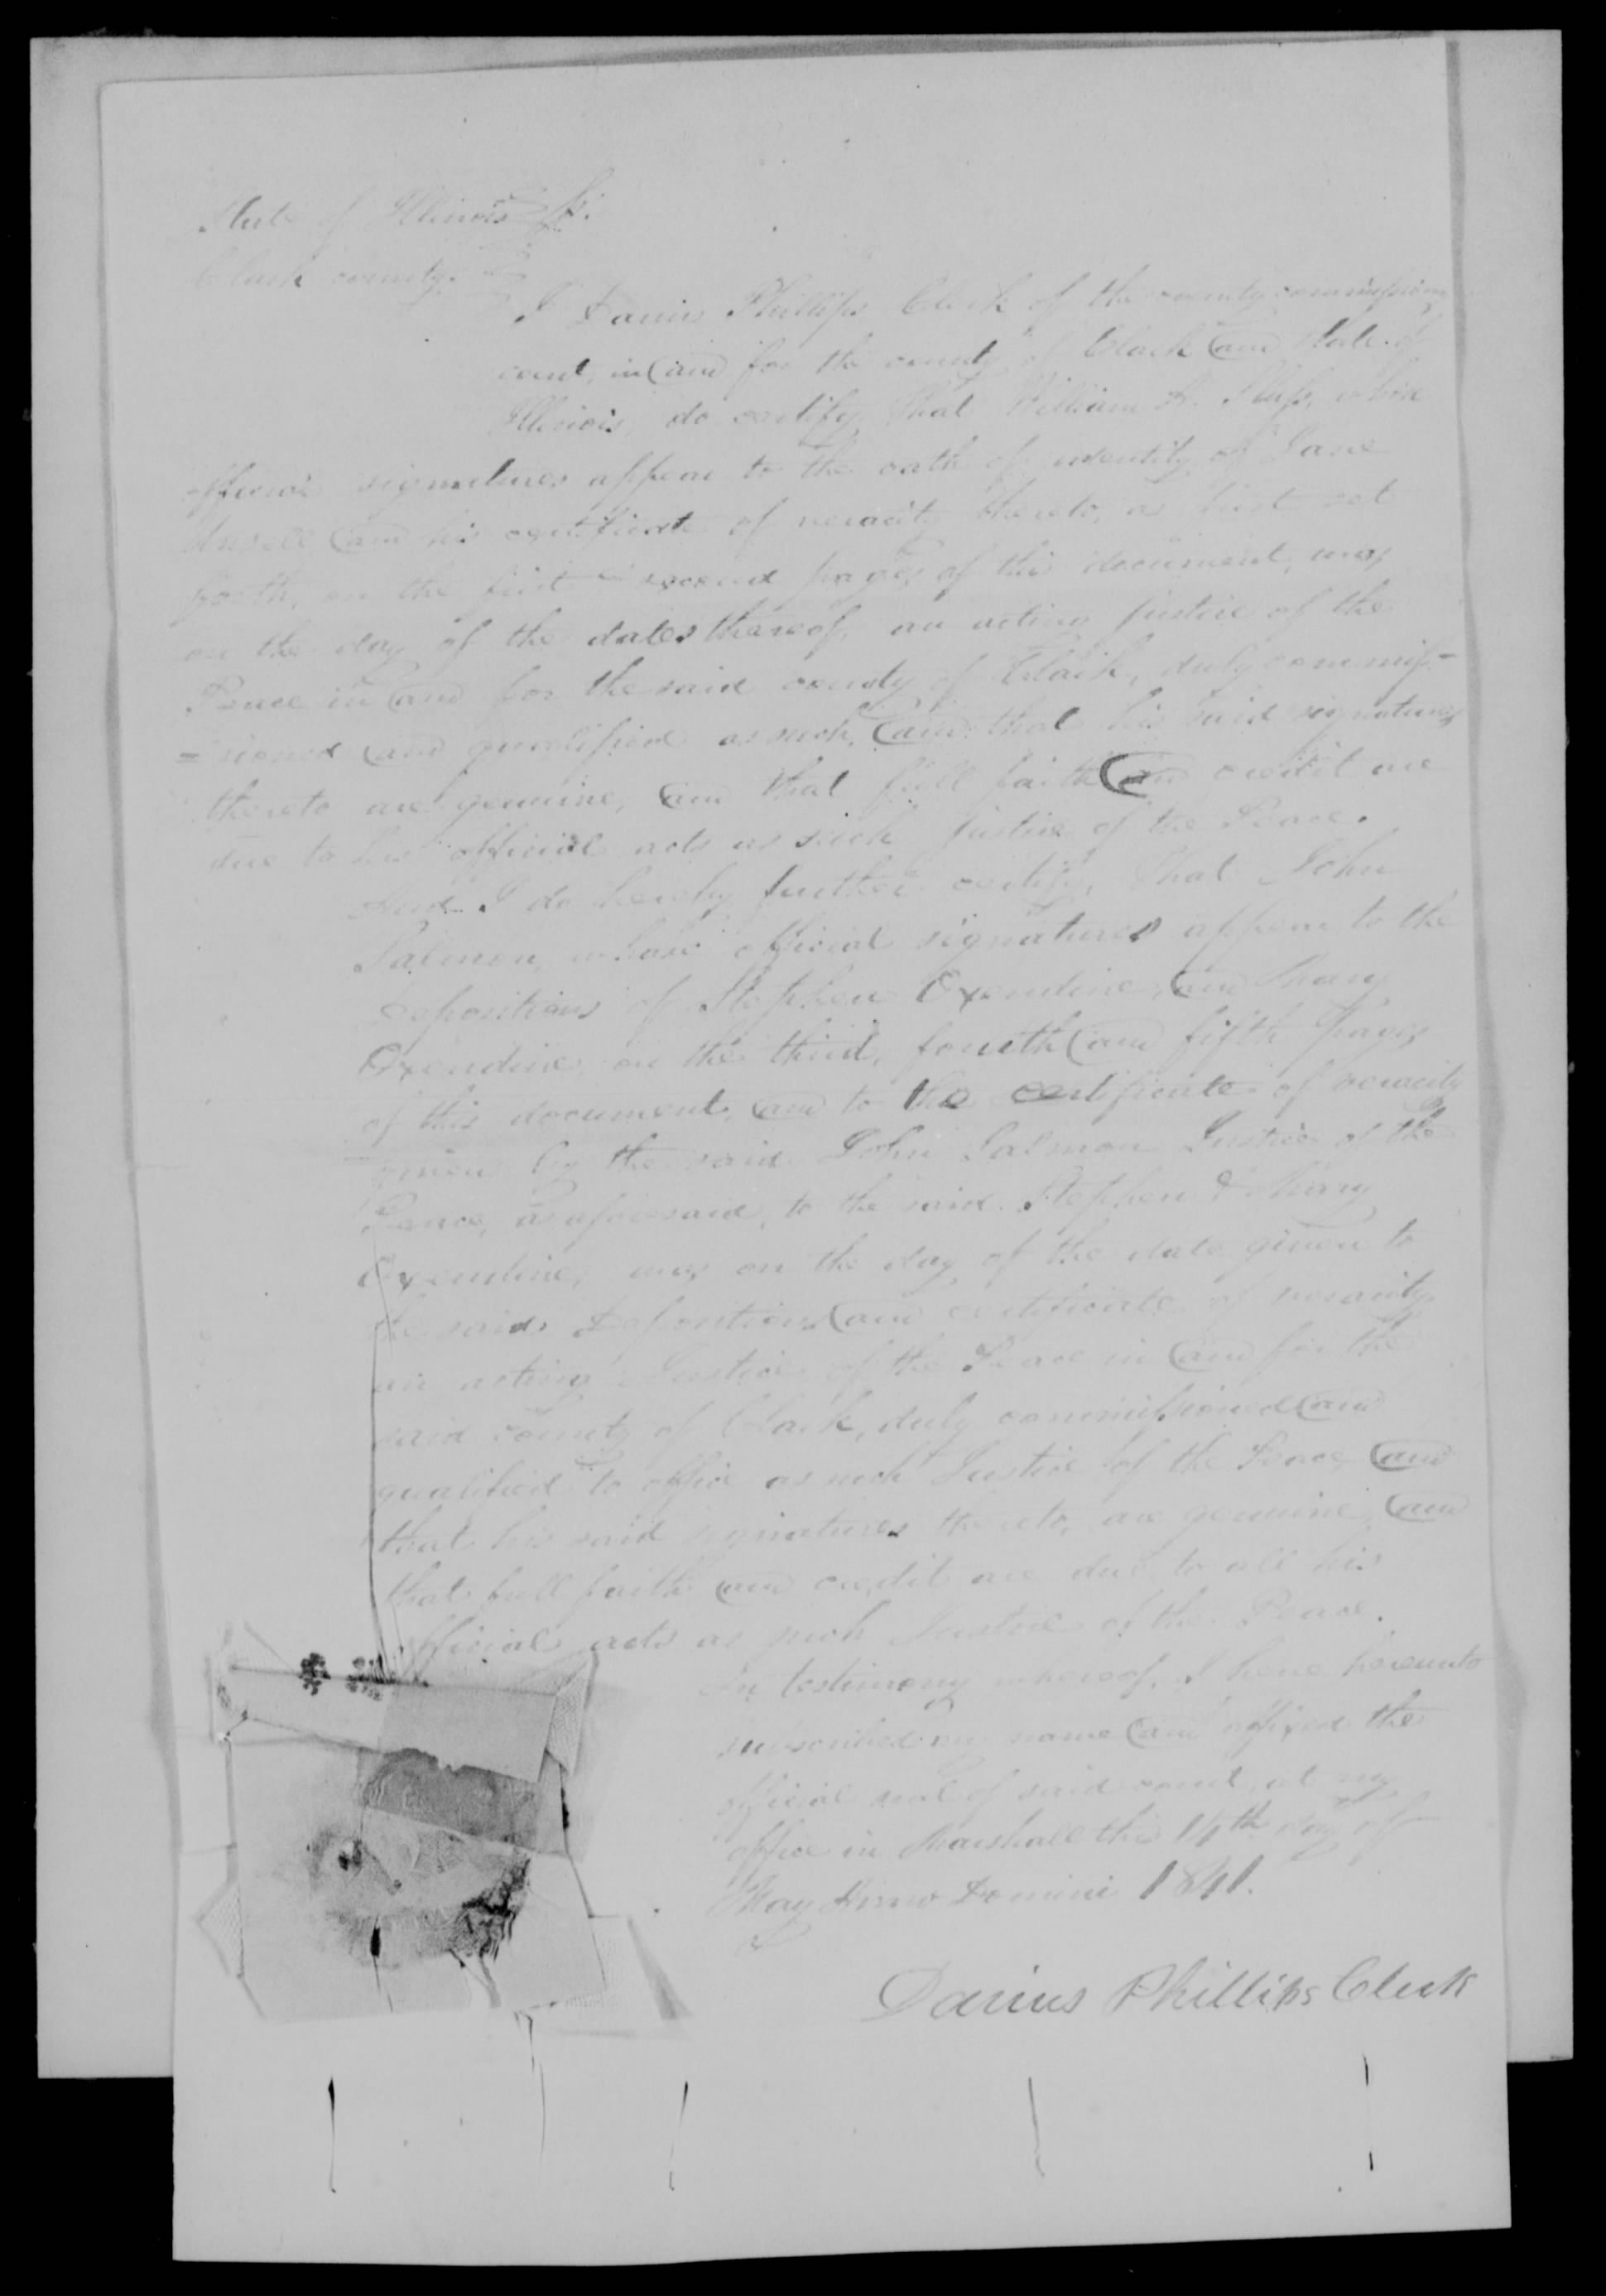 State of Illinois ss.
Clark county.
I Darius Phillips Clerk of the county commissioners
court, in and for the county of Clark and State of
Illinois, do certify that William whose
official signatures appear to the oath of identity of Jane
and his certificate of veracity thereto, as first set
forth, on the first and second pages of this document, was
on the day of the dates thereof, an acting Justice of the
Peace in and for the said county of Clark, duly commis-
=sioned and qualified as such, and that his said signatures
thereto are genuine, and that full faith and credit are
due to his official acts as such Justice of the Peace.
And I do hereby further certify, that John
Salmon, whose official signatures appear to the
depositions of Stephen Oxendine, and Mary
Oxendine, on the third, fourth and fifth pages
of this document, and to the certificate of veracity
given by the said John Salmon Justice of the
Peace, as aforesaid, to the said Stephen & Mary
Oxendine, was on the day of the date given to
the said Depositions and certificate of veracity
an acting Justice of the Peace in and for the
said county of Clark, duly commissioned and
qualified to office as such Justice of the Peace, and
that his said signatures thereto, are genuine, and
that full faith and credit are due to all his
official acts as such Justice of the Peace.
In testimony whereof, I have hereunto
subscribed my name and affixed the
official seal of said court, at my
office in Marshall this 14th day of
May Anno Domini 1841.
Darius Phillips Clerk